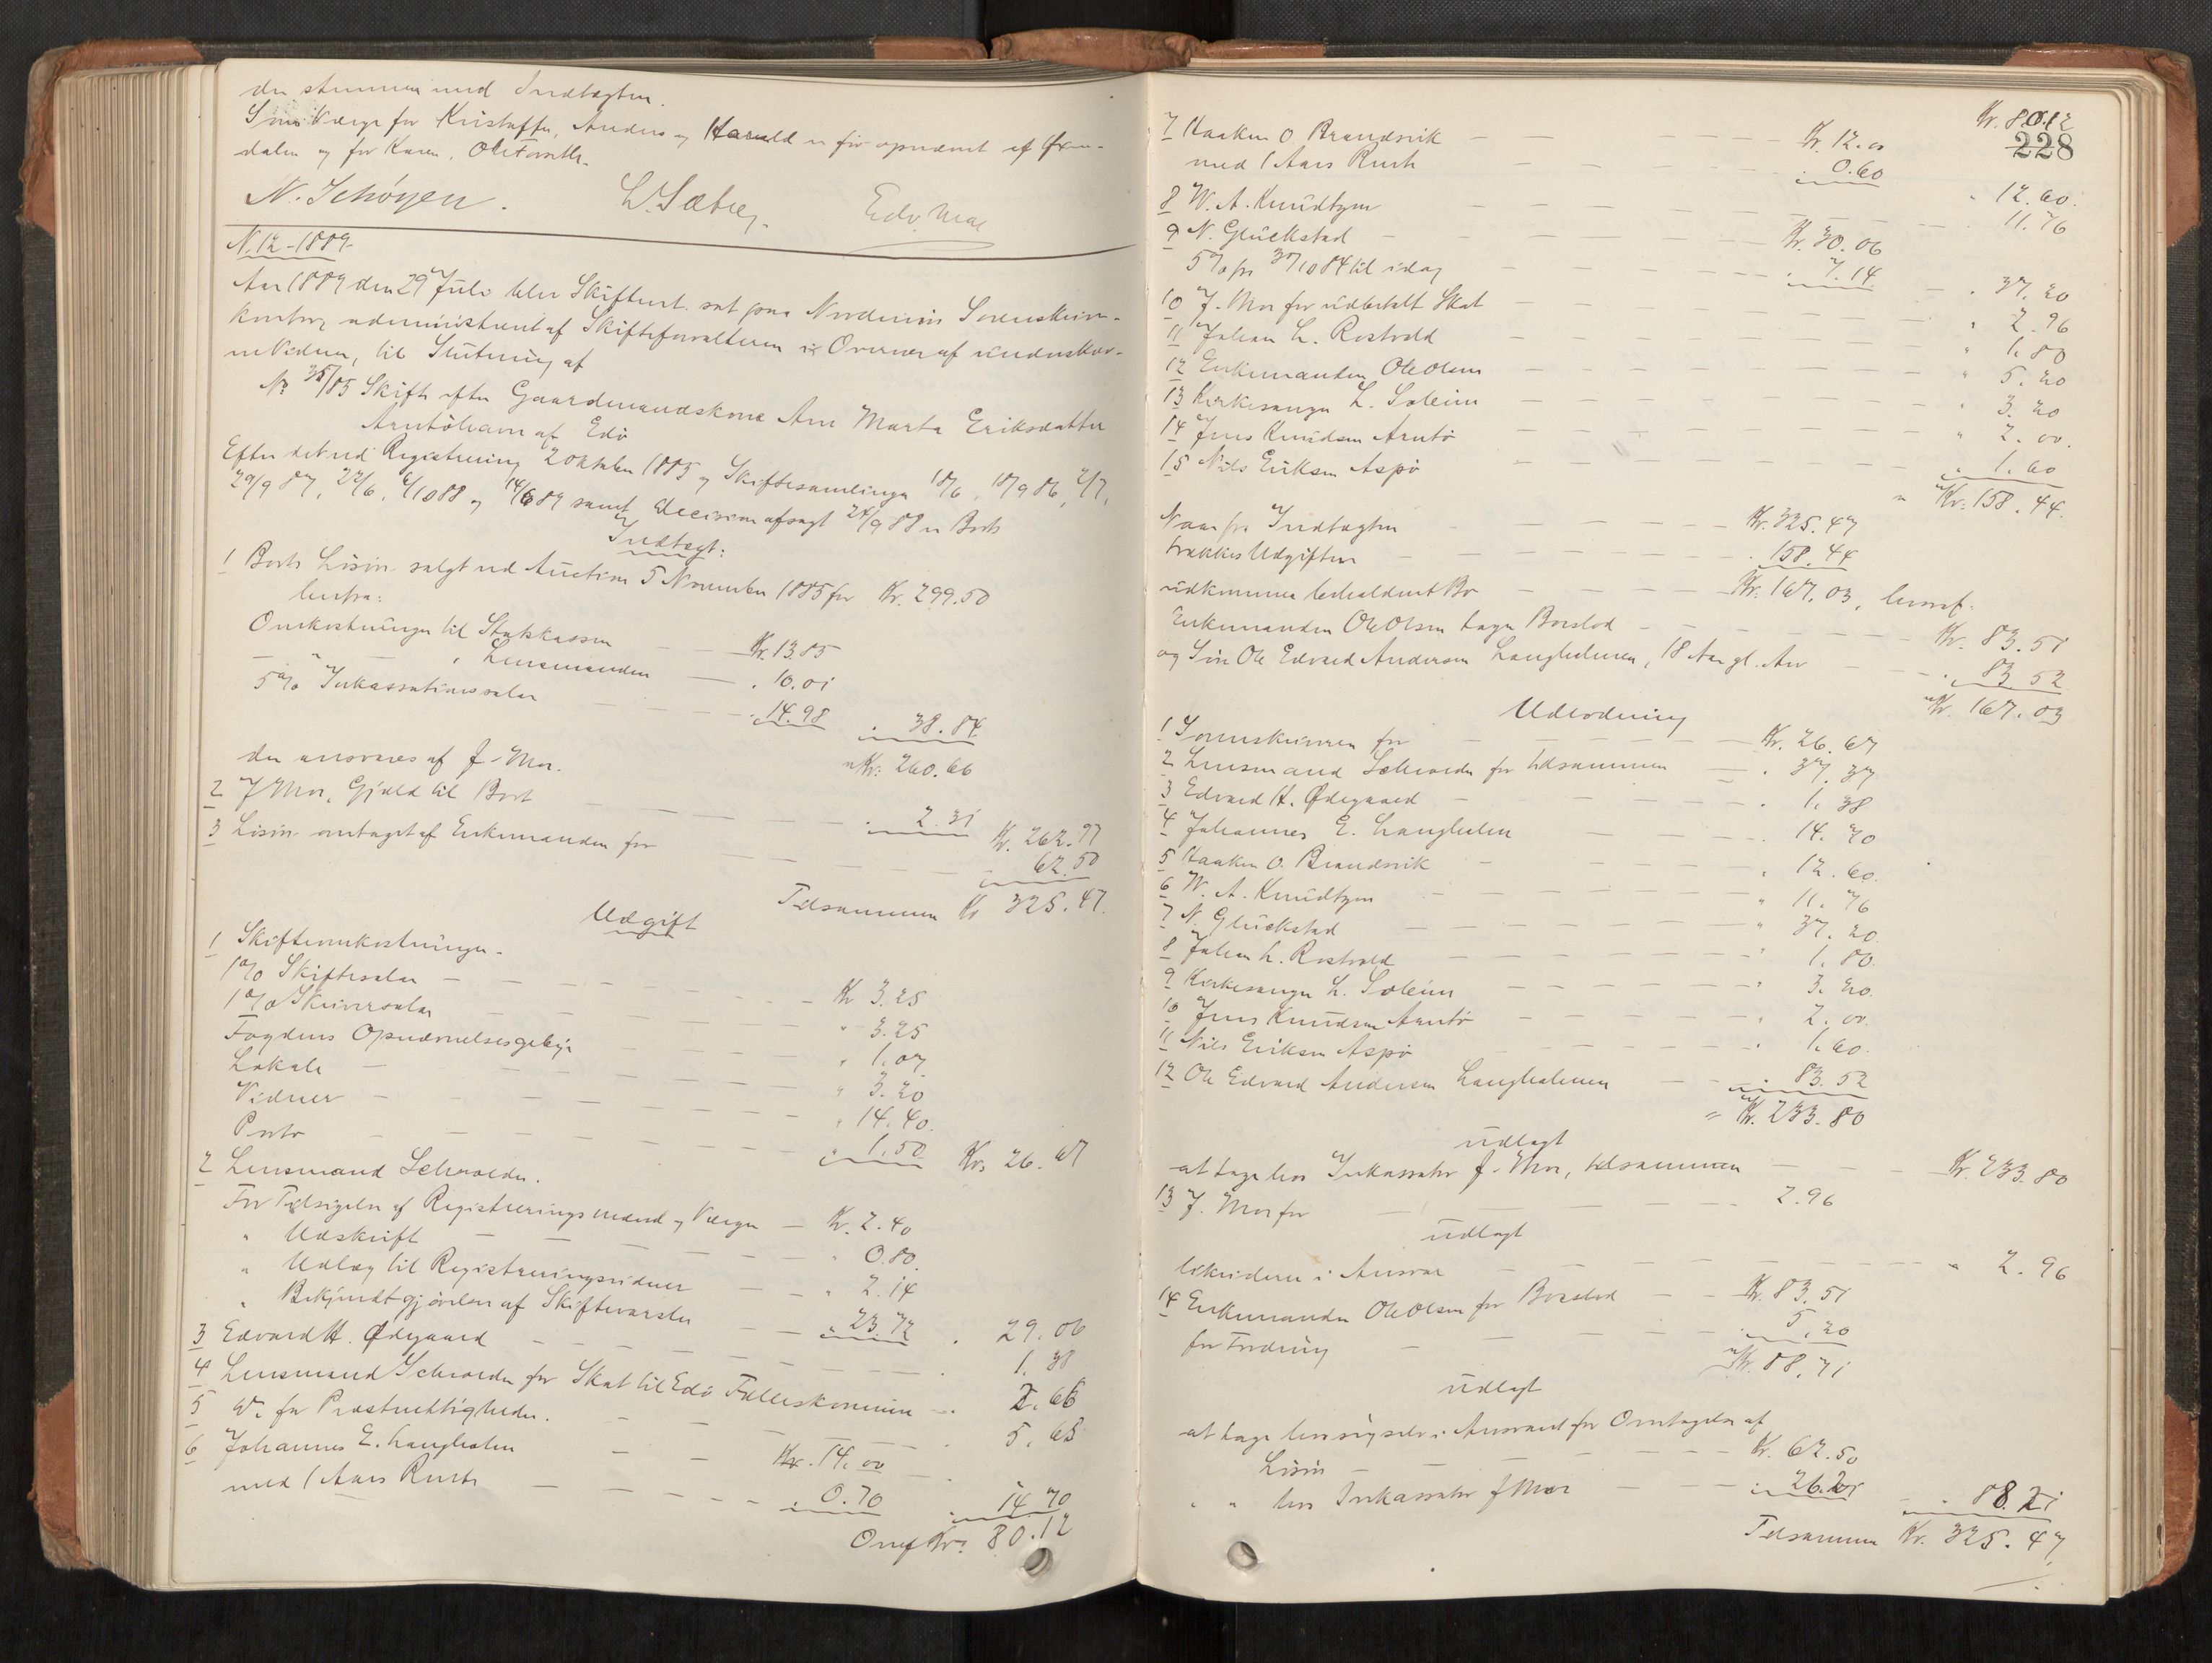 den stemmer med Indtægten.
Som Værge for Kristoffer, Anders og Harald er før opnævnt af
dalen og for Karen, Ole
N. Schøyen. L. Sæbrey. Edv. Moe
N. 12 - 1889.
Aar 1889 den 29 Juli blev Skifteret sat paa Nordmøre Sorenskriver-
kontor, administreret af Skifteforvalteren i Overvær af underskrev-
ne Vidner, til Slutning af
No 35/85 Skifte efter Gaardmandskone Ane Marta Eriksdatter
Arntøhavn af Edø
Efter det ved Registrering 2 Oktober 1885 og Skiftesamlinger 18/6, 18/9 86, 2/7,
29/9 87, 22/6, 6/10 88 og 14/6 89 samt Decision afsagt 24/9 88 er Boets
Indtægt:
1 Boets Løsøre solgt ved Auction 5 November 1885 for Kr. 299.50
herfra:
Omkostninger til Statskassen Kr. 13.85
" " Lensmanden " 10.01
5 % Inkassationssalær " 14.98 " 38.84
der ansvares af J. Moe. Kr. 260.66
2 J. Moe, Gjæld til Boet " 2.31 Kr. 262.97
3 Løsøre overtaget af Enkemanden for " 62.50
Tilsammen Kr 325.47.
Udgift
1 Skifteomkostninger.
1 % Skiftesalær Kr 3.25
1 % Skriversalær " 3.25
Fogdens Opnævnelsesgebyr " 1.07
Lokale " 3.20
Vidner " 14.40.
Porto " 1.50 Kr. 26.67
2 Lensmand Schrøder.
For Tilsigelse af Registreringsmænd og Værger Kr. 2.40
" Udskrift " 0.80.
" Udlæg til Registreringsvidner " 2.14
" Bekjendtgjørelse af Skiftevarsler " 23.72 " 29.06
3 Edvard H. Ødegaard " 1.38
4 Lensmand Schrøder for Skat til Edø Fælleskommune " 2.66
5 Do for Præsterettigheder. " 5.65
6 Johannes E. Langholen Kr. 14.00
med 1 Aars Rente " 0.70 " 14.70
Overf Kr. 80.12
Kr. 80.12
228
7 Haaken O Brandsvik Kr. 12.00
med 1 Aars Rente " 0.60 " 12.60.
8 W. A. Knudtzon " 11.76
9 N. Glückstad Kr. 30.06
5 % fra 30/10 84 til idag " 7.14. " 37.20
10 J. Moe for udbetalt Skat " 2.96
11 Johan L. Rostvold " 1.80
12 Enkemanden Ole Olsen " 5.20
13 Kirkesanger L. Soleim " 3.20
14 Jens Knudsen Arntø " 2.00.
15 Nils Eriksen Aspø " 1.60
Kr. 158.44.
Naar fra Indtægten Kr. 325.47
trækkes Udgiften " 158.44
udkommer beholdent Bo Kr. 167.03, hvoraf
Enkemanden Ole Olsen tager Boeslod Kr. 83.51
og Søn Ole Edvard Andersen Langholmen, 18 Aar gl. Arv " 83.52
Kr. 167.03
Udlodning
1 Sorenskriveren for Kr. 26.67
2 Lensmand Schrøder for tilsammen " 37.37
3 Edvard H. Ødegaard " 1.38
4 Johannes E. Langholen " 14.70
5 Haaken O. Brandsvik " 12.60.
6 W. A. Knudtzon " 11.76
7 N. Glückstad " 37.20.
8 Johan L. Rostvold " 1.80.
9 Kirkesanger L. Soleim " 3.20.
10 Jens Knudsen Arntø " 2.00.
11 Nils Eriksen Aspø " 1.60.
12 Ole Edvard Andersen Langholmen " 83.52
Kr. 233.80
udlagt
at tage hos Inkassator J. Moe, tilsammen Kr. 233.80
13 J. Moe for 2.96
udlagt
likviderer i Ansvar " 2.96
14 Enkemanden Ole Olsen for Boeslod Kr. 83.51
for Fordring " 5.20
Kr. 88.71
udlagt
at tage hos sig selv i Ansvaret for Overtagelse af
Løsøre Kr. 62.50
" " hos Inkassator J Moe " 26.21 " 88.71
Tilsammen Kr. 325.47.